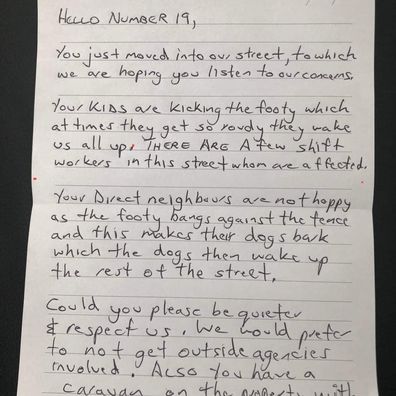 HELLO NUMBER 19,
You just moved into our street, to which
we are hoping you listen to our concerns.
Your KIDS are Kicking the footy which
at times they get so rowdy they wake
us all up. THERE ARE A few shift
workers in this street whom are affected.
Your Direct neighbours are not happy
as the footy bangs against the fence
and this makes their dogs bark
which the dogs then wake up
the rest of the street.
Could you please be quieter
& respect us. We would prefer
to not get outside agencies
involved. Also You have a
caravan on the property with